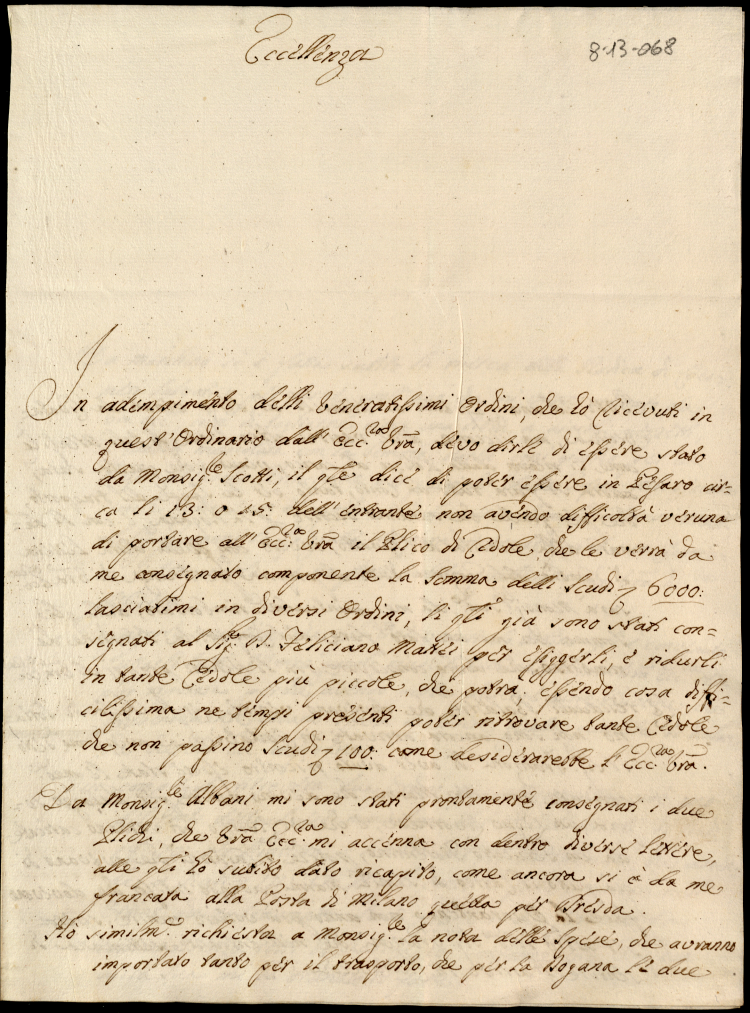 Eccellenza
8-13-068
In adempimento delli veneratissimi Ordini, che hò ricevuti in
quest'Ordinario dall'Ecc:za Vrã, devo dirle di essere stato
da Monsig.re Scotti, il qle dice di poter essere in Pesaro cir=
ca li 13: o 15: dell'entrante non avendo difficoltà veruna
di portare all'Ecc:za Vrã il Plico di Cedole che le verrà da
me consegnato componente la somma delli Scudi 6000:
lasciatimi in diversi Ordini, li qli già sono stati con=
segnati al Sig.r D. Feliciano Mattei per esiggerli, e ridurli
in tante Cedole più piccole, che potrà; essendo cosa diffi=
cilissima ne tempi presenti poter ritrovare tante Cedole
che non passino Scudi 100: come desiderarebbe l'Ecc:za Vrã.
Da Monsig.re Albani mi sono stati prontamente consegnati i due
Plichi, che Vrã Ecc:za mi accenna con dentro diverse lettere,
alle qli hò subito dato ricapito, come ancora si è da me
francata alla Posta di Milano quella per Dresda.
Hò similm.e richiesta a Monsig.re la nota delle Spese, che avranno
importato tanto per il trasporto, che per la Dogana le due